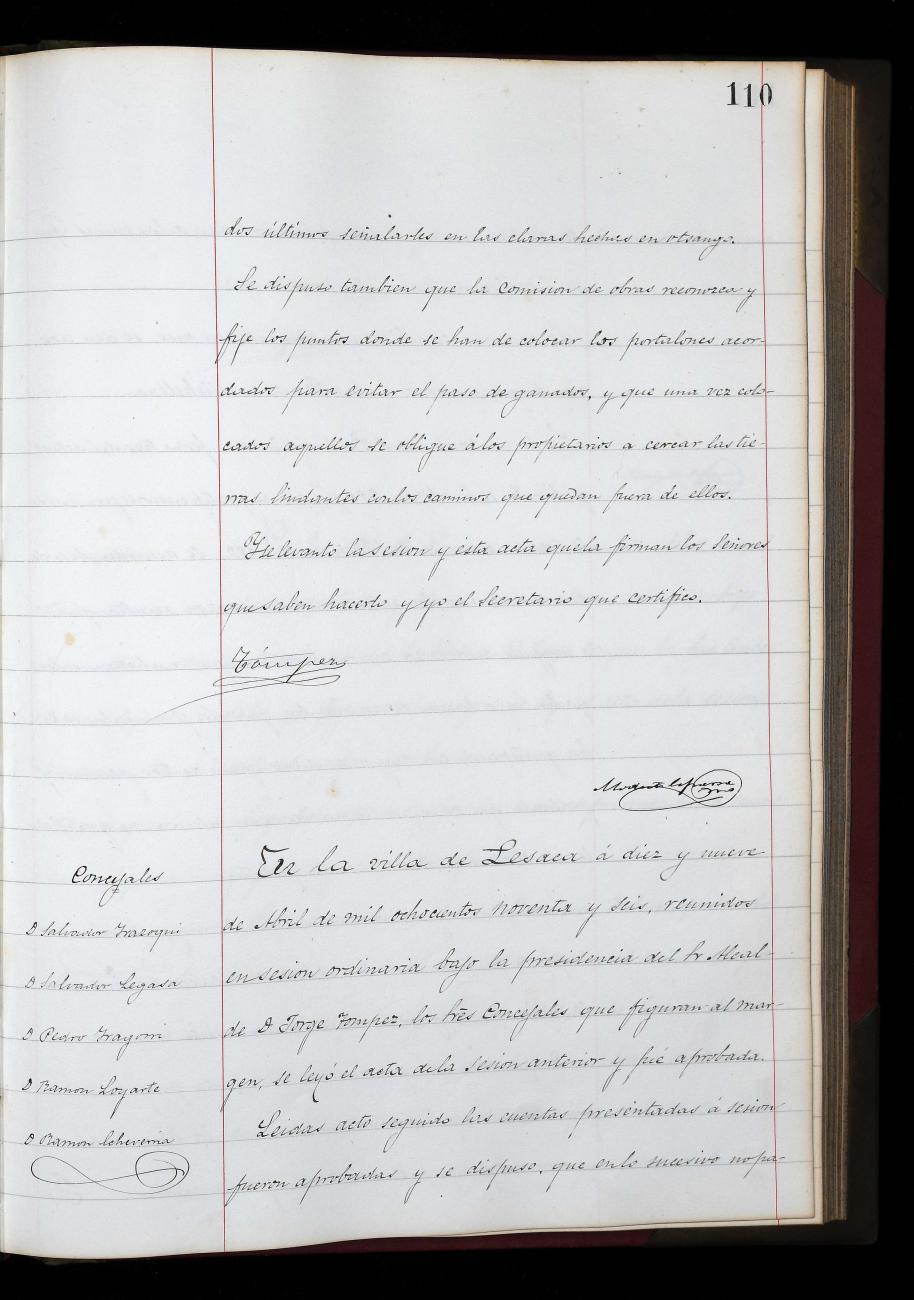 110
dos últimos señalarles en las claras hechas en otsango.
Se dispuso tambien que la Comision de obras reconozca y
fije los puntos donde se han de colocar los portalones acor-
dados para evitar el paso de ganados, y que una vez colo-
cados aquellos se obligue á los propietarios a cercar las tie-
rras lindantes con los caminos que quedan fuera de ellos.
Y se levantó la sesion y ésta acta que la firman los Señores
que saben hacerlo y yo el Secretario que certifico.
Tómpez
Modesto
En la villa de Lesaca á diez y nueve
de Abril de mil ochocientos noventa y seis, reunidos
en sesion ordinaria bajo la presidencia del Sr Alcal-
de D Jorge Tompez, los tres Concejales que figuran al mar-
gen, se leyó el acta de la sesion anterior y fué aprobada.
Leidas acto seguido las cuentas presentadas á sesion
fueron aprobadas y se dispuso, que en lo sucesivo no pa-
Concejales
D Salvador Irazoqui
D Salvador Legasa
D Pedro Irazoqui
D Ramon Loyarte
D Ramon Echeverria